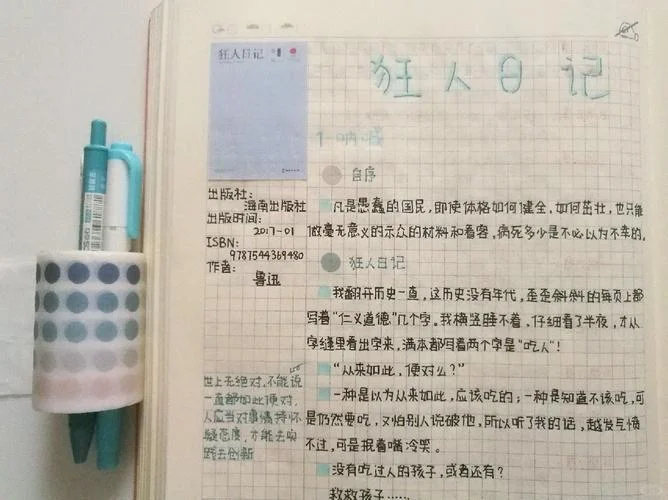 狂人日记
狂人日记
1·呐喊
自序
出版社:
海南出版社
出版时间:
2017-01
ISBN:
9787544369480
作者:
鲁迅
凡是愚蠢的国民,即使体格如何健全,如何茁壮,也只能
做毫无意义的示众的材料和看客,病死多少是不必以为不幸的。
狂人日记
我翻开历史一查,这历史没有年代,歪歪斜斜的每页上都
写着“仁义道德”几个字。我横竖睡不着,仔细看了半夜,才从
字缝里看出字来,满本都写着两个字是“吃人”!
“从来如此,便对么?”
一种是以为从来如此,应该吃的;一种是知道不该吃,可
是仍然要吃,又怕别人说破他,所以听了我的话,越发气愤
不过,可是抿着嘴冷笑。
没有吃过人的孩子,或者还有?
救救孩子……
世上无绝对,不能说
一直都如此便对,
人应当对事情持怀
疑态度,才能去实
践去创新